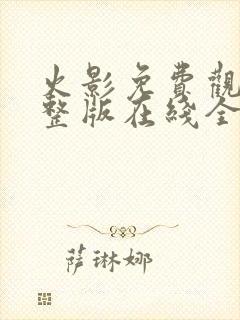 火影免費觀
整版在綫全
萨琳娜